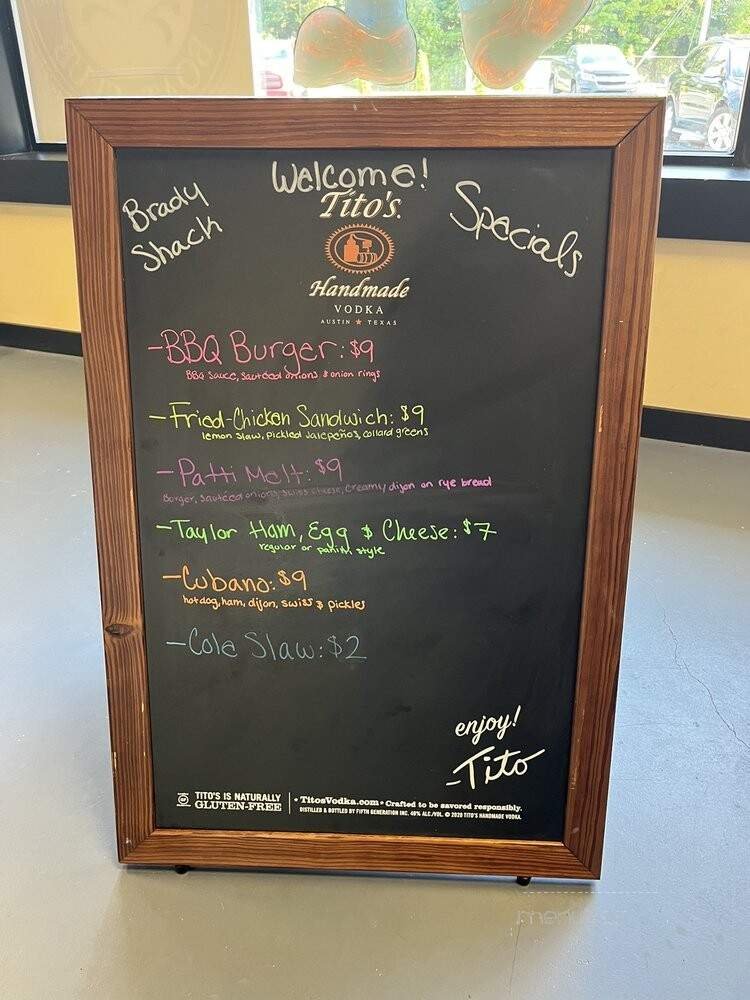 Welcome!
Brady
Shack
Specials
Tito's
Handmade
VODKA
AUSTIN ★ TEXAS
-BBQ Burger: $9
BBQ Sauce, Sautéed onions & onion rings
-Fried-Chicken Sandwich: $9
lemon slaw, pickled Jalepeños, collard greens
-Patti Melt: $9
Burger, Sautéed onions, swiss cheese, creamy dijon on rye bread
-Taylor Ham, Egg & Cheese: $7
regular or panini style
-Cubano: $9
hotdog, ham, dijon, swiss & pickles
-Cole Slaw: $2
enjoy!
-Tito
TITO'S IS NATURALLY
GLUTEN-FREE
• TitosVodka.com • Crafted to be savored responsibly.
DISTILLED & BOTTLED BY FIFTH GENERATION INC. 40% ALC./VOL. © 2020 TITO'S HANDMADE VODKA.